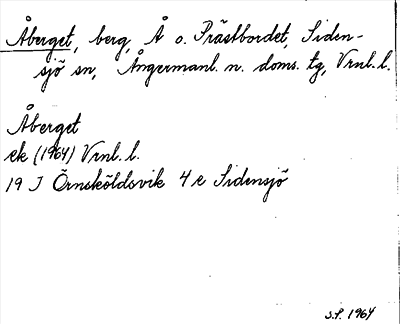 Åberget, berg, Å o. Prästbordet, Siden-
sjö sn, Ångermanl. n. doms. tg, Vrnl. l.
Åberget
ek (1964) Vrnl. l.
19 J Örnsköldsvik 4 e Sidensjö
S.P. 1964